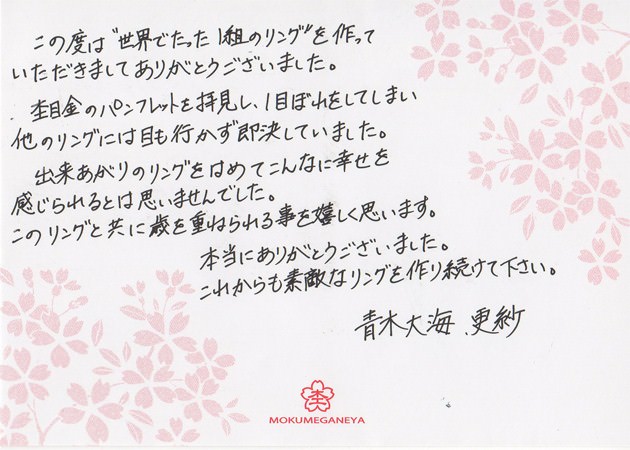 この度は"世界でたった1組のリング"を作って
いただきましてありがとうございました。
杢目金のパンフレットを拝見し、1目ぼれをしてしまい
他のリングには目も行かず即決していました。
出来あがりのリングをはめてこんなに幸せを
感じられるとは思いませんでした。
このリングと共に歳を重ねられる事を嬉しく思います。
本当にありがとうございました。
これからも素敵なリングを作り続けて下さい。
青木大海 更紗
杢
MOKUMEGANEYA